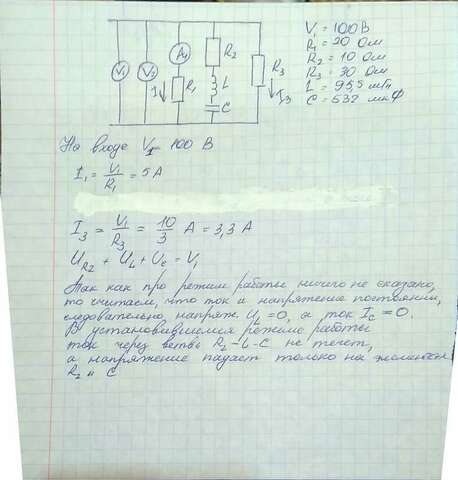 V₁ = 100 В
R₁ = 20 Ом
R₂ = 10 Ом
R₃ = 30 Ом
L = 95,5 мГн
C = 532 мкФ
V₁
V₂
A₁
R₂
I
R₁
L
C
R₃
I₃
На входе V₁ = 100 В
I₁ = V₁/R₁ = 5 А
I₃ = V₁/R₃ = 10/3 А = 3,3 А
U_R₂ + U_L + U_C = V₁
Так как про режим работы ничего не сказано,
то считаем, что ток и напряжение постоянны,
следовательно, напряж. U_L = 0, а ток I_C = 0.
В установившемся режиме работы
ток через ветвь R₂ – L – C не течет,
а напряжение падает только на
R₂ и C